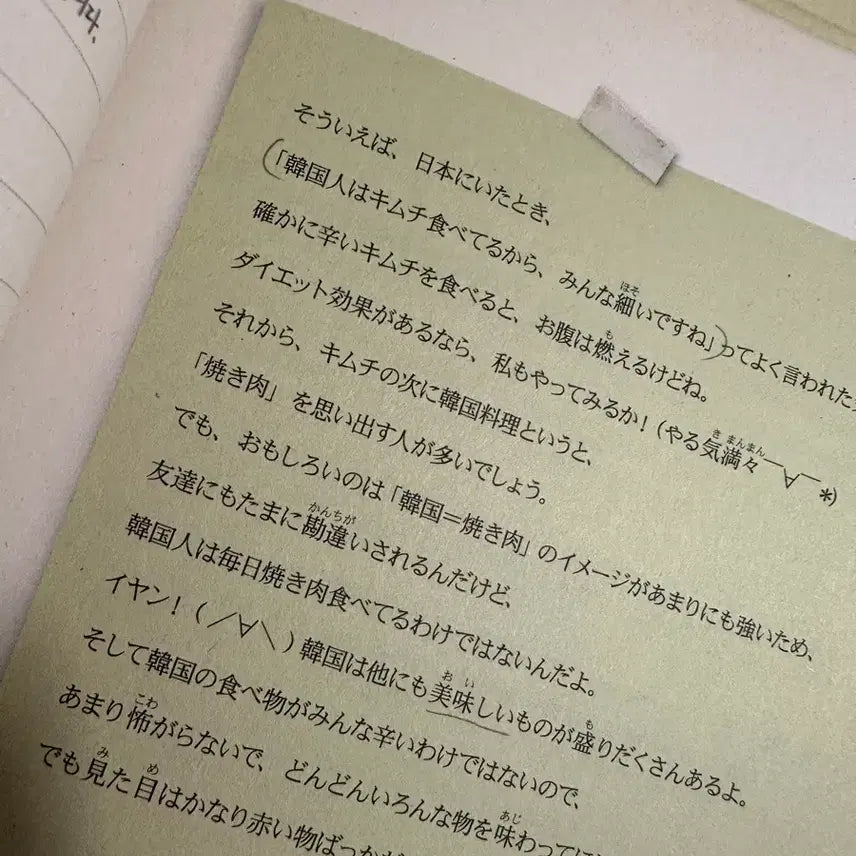 そういえば、日本にいたとき、
「韓国人はキムチ食べてるから、みんな細いですね」ってよく言われた
確かに辛いキムチを食べると、お腹は燃えるけどね。
ダイエット効果があるなら、私もやってみるか!(やる気満々 ̄∀ ̄*)
それから、キムチの次に韓国料理というと、
「焼き肉」を思い出す人が多いでしょう。
でも、おもしろいのは「韓国=焼き肉」のイメージがあまりにも強いため、
友達にもたまに勘違いされるんだけど、
韓国人は毎日焼き肉食べてるわけではないんだよ。
イヤン!(/∀\)韓国は他にも美味しいものが盛りだくさんあるよ。
そして韓国の食べ物がみんな辛いわけではないので、
あまり怖がらないで、どんどんいろんな物を味わって
でも見た目はかなり赤い物ばっか